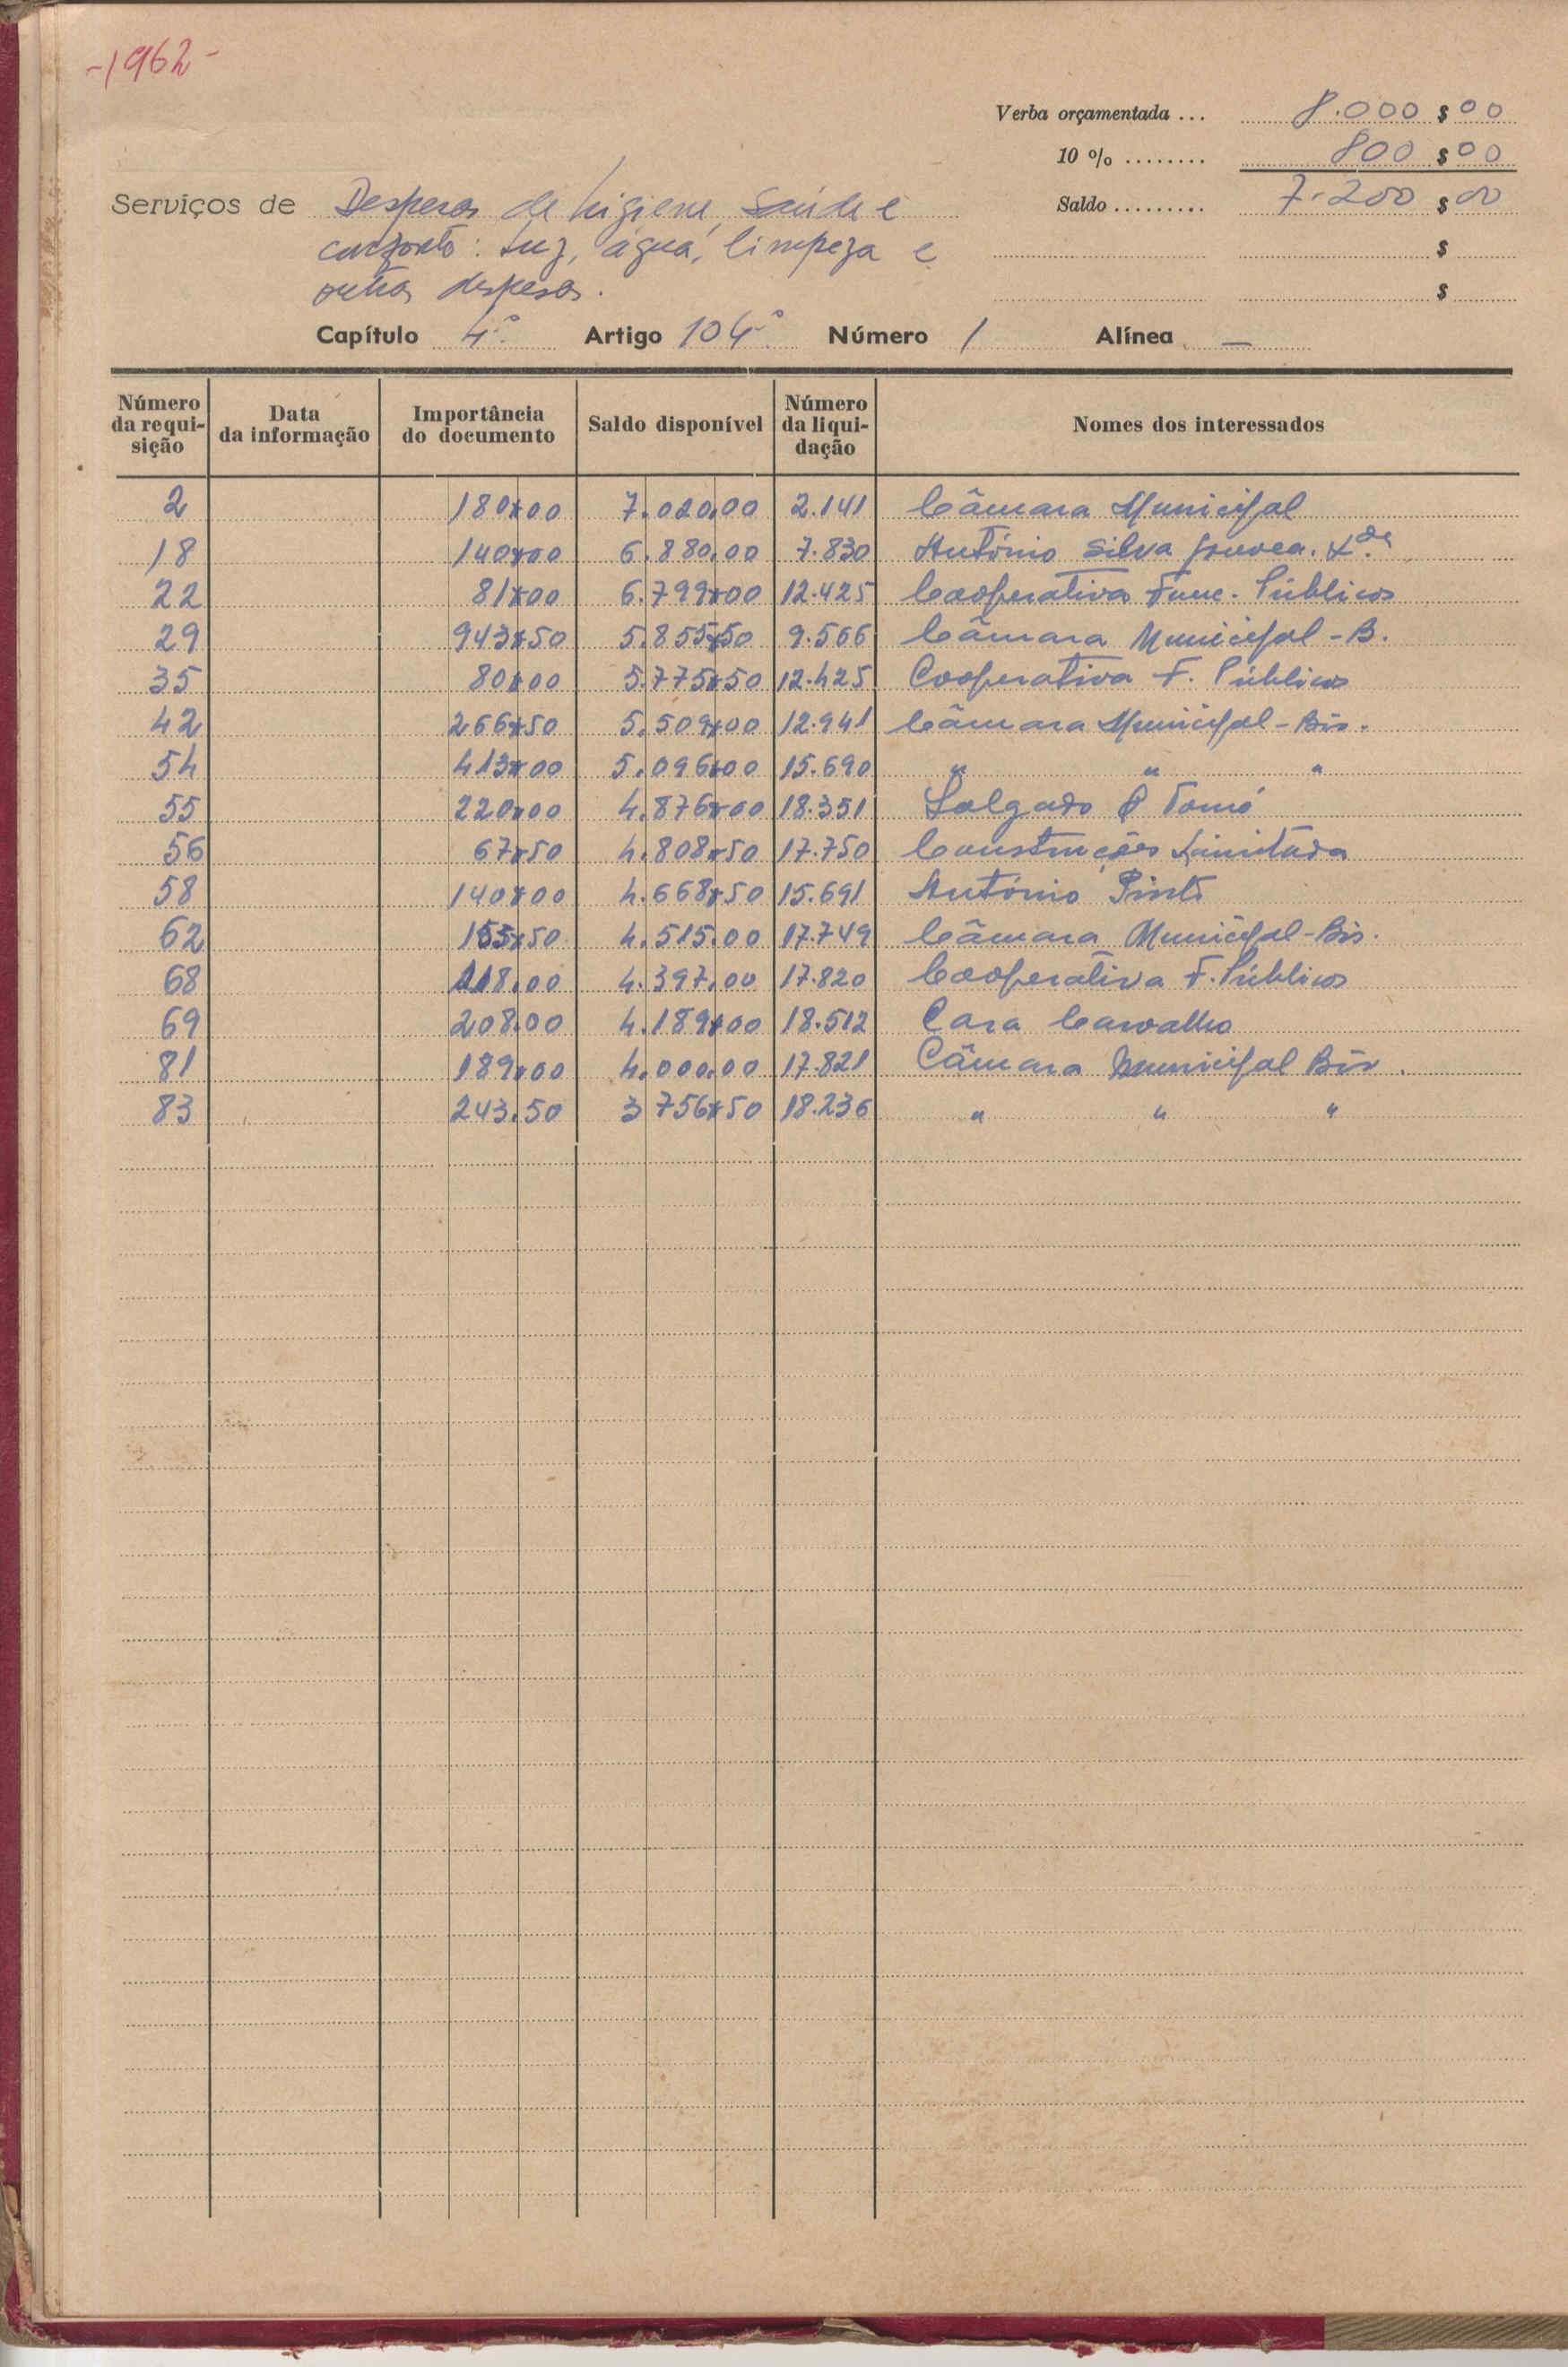 -1962-
Verba orçamentada ... 8.000 $ 00
10 % ........ 800 $ 00
Saldo ......... 7.200 $ 00
$
$
Serviços de Despesas de higiene, Saúde e
conforto: Luz, água, limpeza e
outras despesas.
Capítulo 4.º Artigo 104.º Número 1 Alínea —
Número da requi-sição Data da informação Importância do documento Saldo disponível Número da liqui-dação Nomes dos interessados
2 180$00 7.020,00 2.141 Câmara Municipal
18 140$00 6.880,00 7.830 António Silva Gouvea. Lda
22 81$00 6.799$00 12.425 Cooperativa Func. Públicos
29 943$50 5.855$50 9.566 Câmara Municipal - B.
35 80$00 5.775$50 12.425 Cooperativa F. Públicos
42 266$50 5.509$00 12.941 Câmara Municipal - Bis.
54 413$00 5.096$00 15.690 " " "
55 220$00 4.876$00 18.351 Salgado & Tomé
56 67$50 4.808$50 17.750 Construções Limitada
58 140$00 4.668$50 15.691 António Pinto
62 153$50 4.515.00 17.749 Câmara Municipal - Bis.
68 118.00 4.397.00 17.820 Cooperativa F. Públicos
69 208.00 4.189$00 18.512 Casa Carvalho
81 189$00 4.000.00 17.821 Câmara Municipal Bis.
83 243.50 3 756$50 18.236 " " "